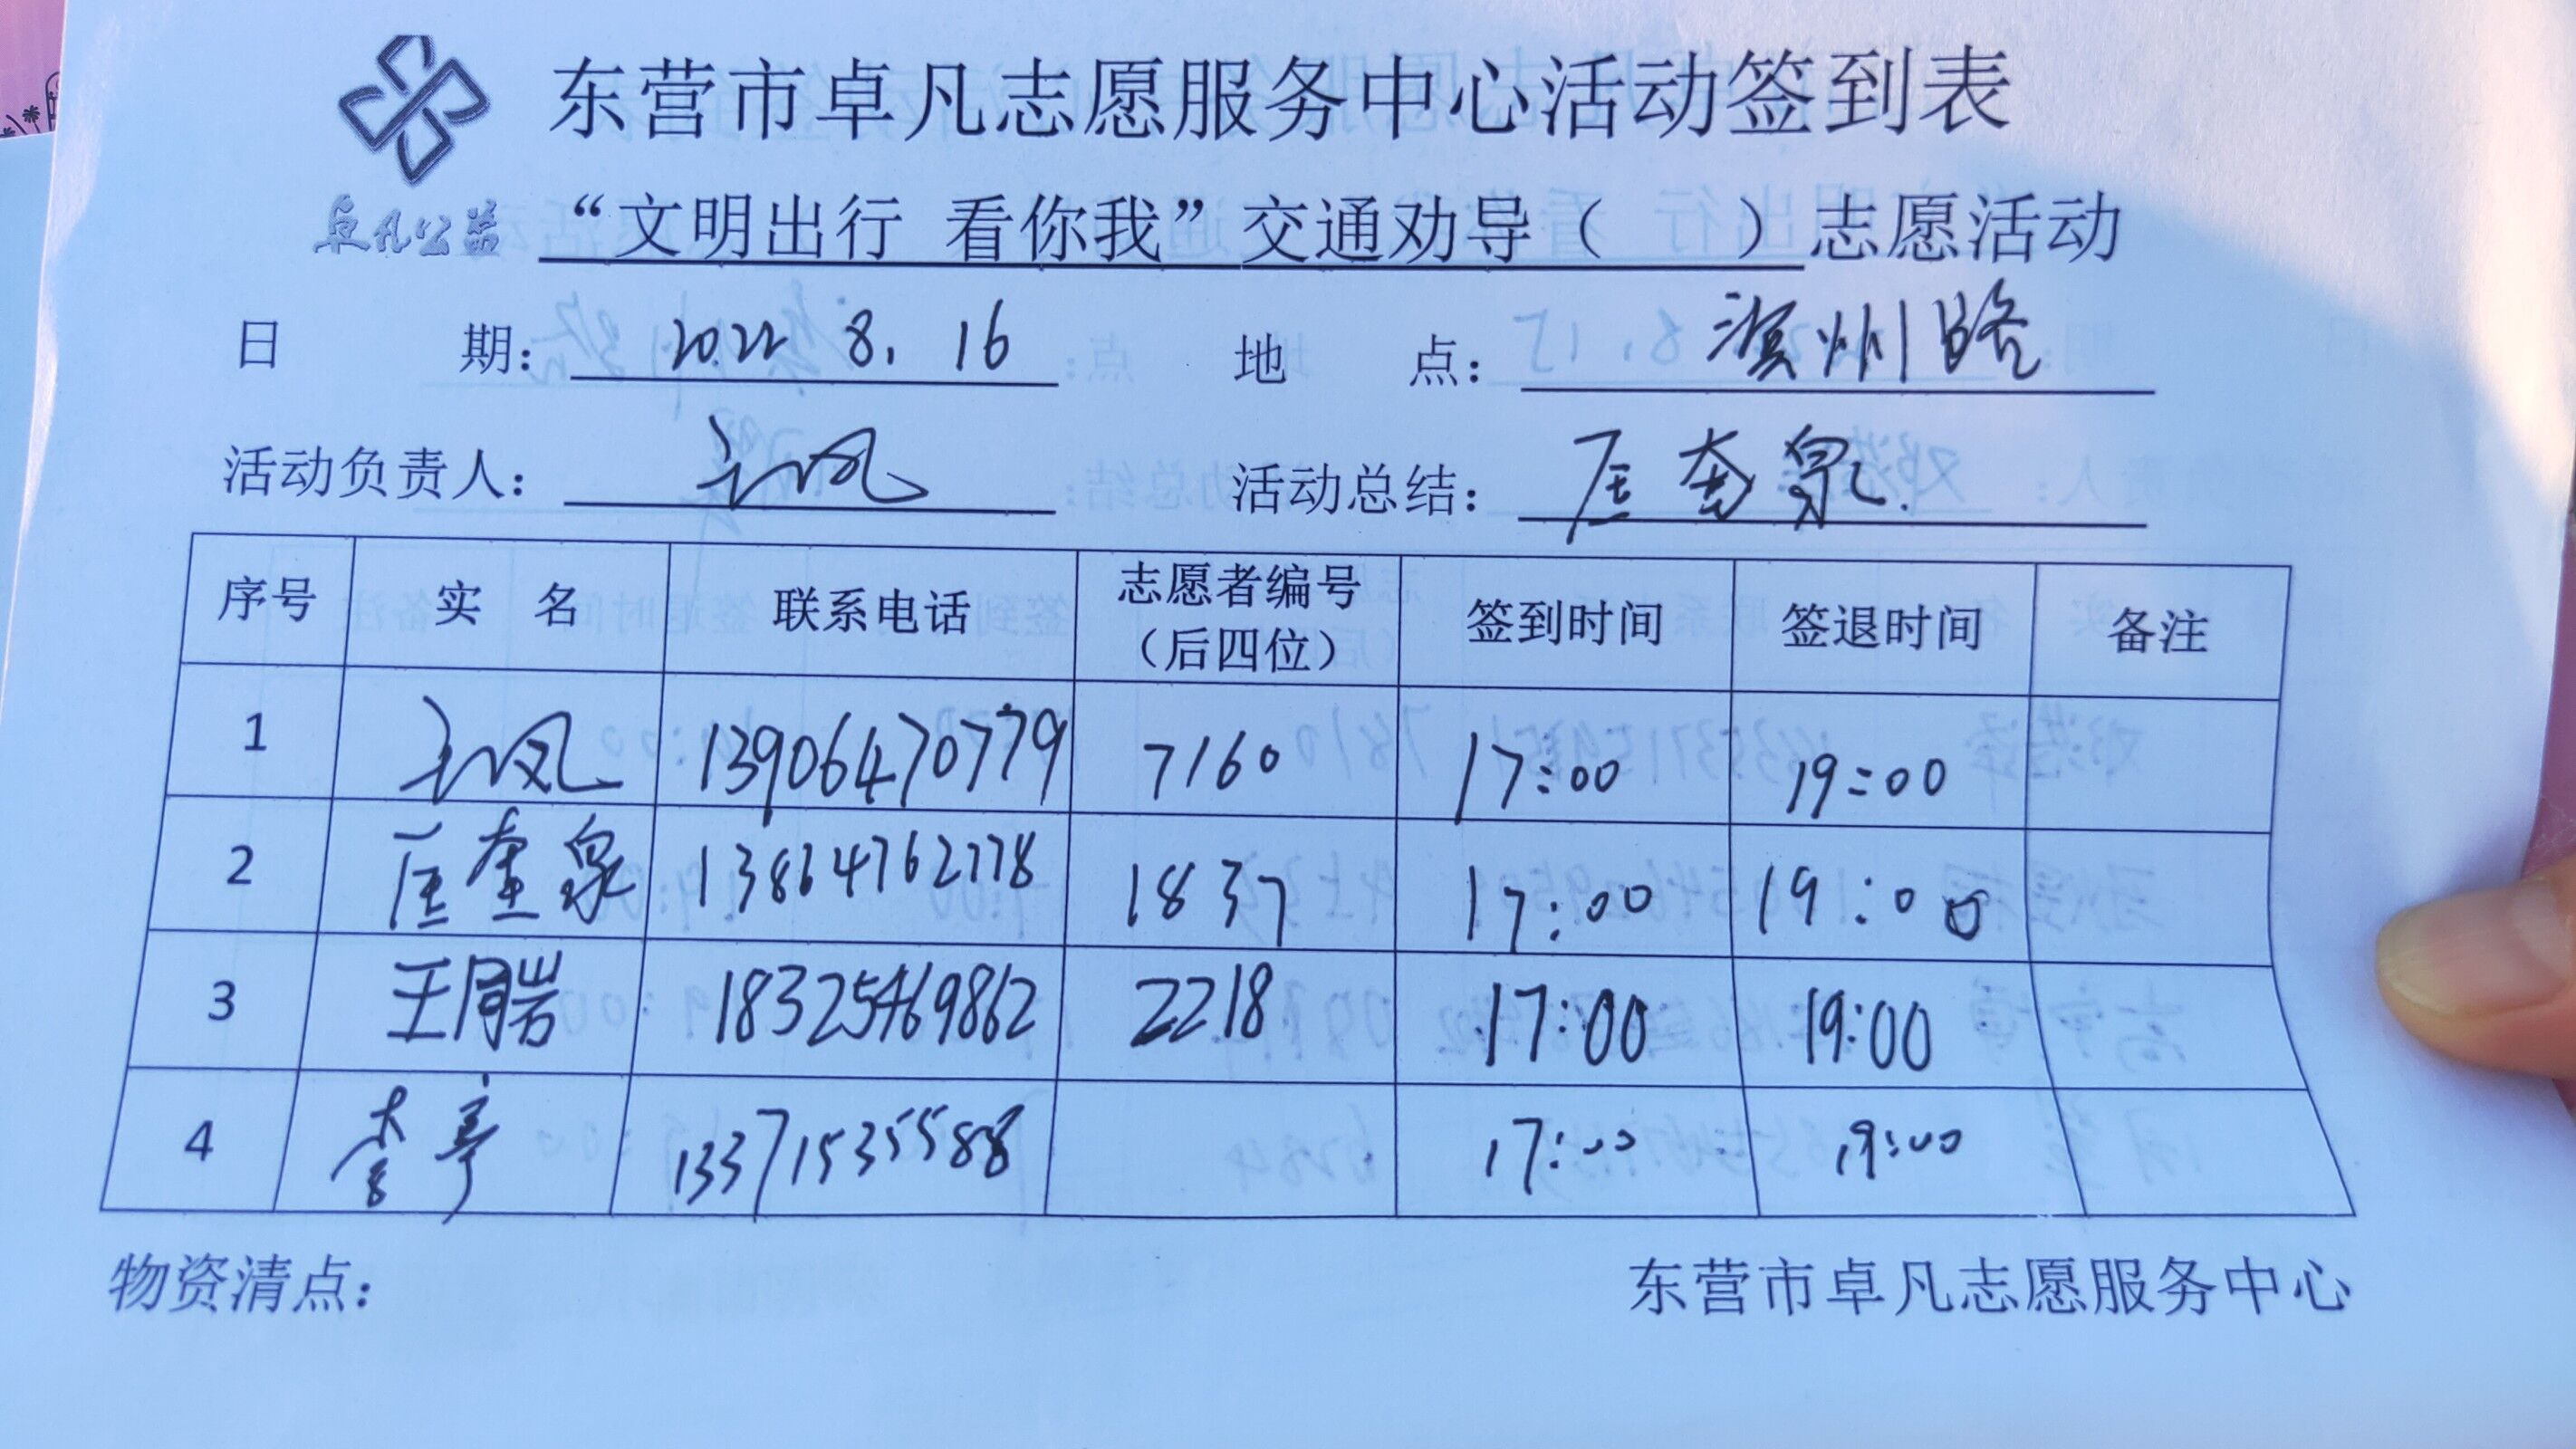 东营市卓凡志愿服务中心活动签到表
卓凡公益
“文明出行 看你我”交通劝导（ ）志愿活动
日 期： 2022 8. 16 地 点： 滨州路
活动负责人： 活动总结： 匡奎泉
序号 实 名 联系电话 志愿者编号（后四位） 签到时间 签退时间 备注
1 13906470779 7160 17:00 19:00
2 匡奎泉 13864762778 1837 17:00 19:00
3 王同岩 18325469862 2218 17:00 19:00
4 李亭 13371535588 17:00 19:00
物资清点： 东营市卓凡志愿服务中心